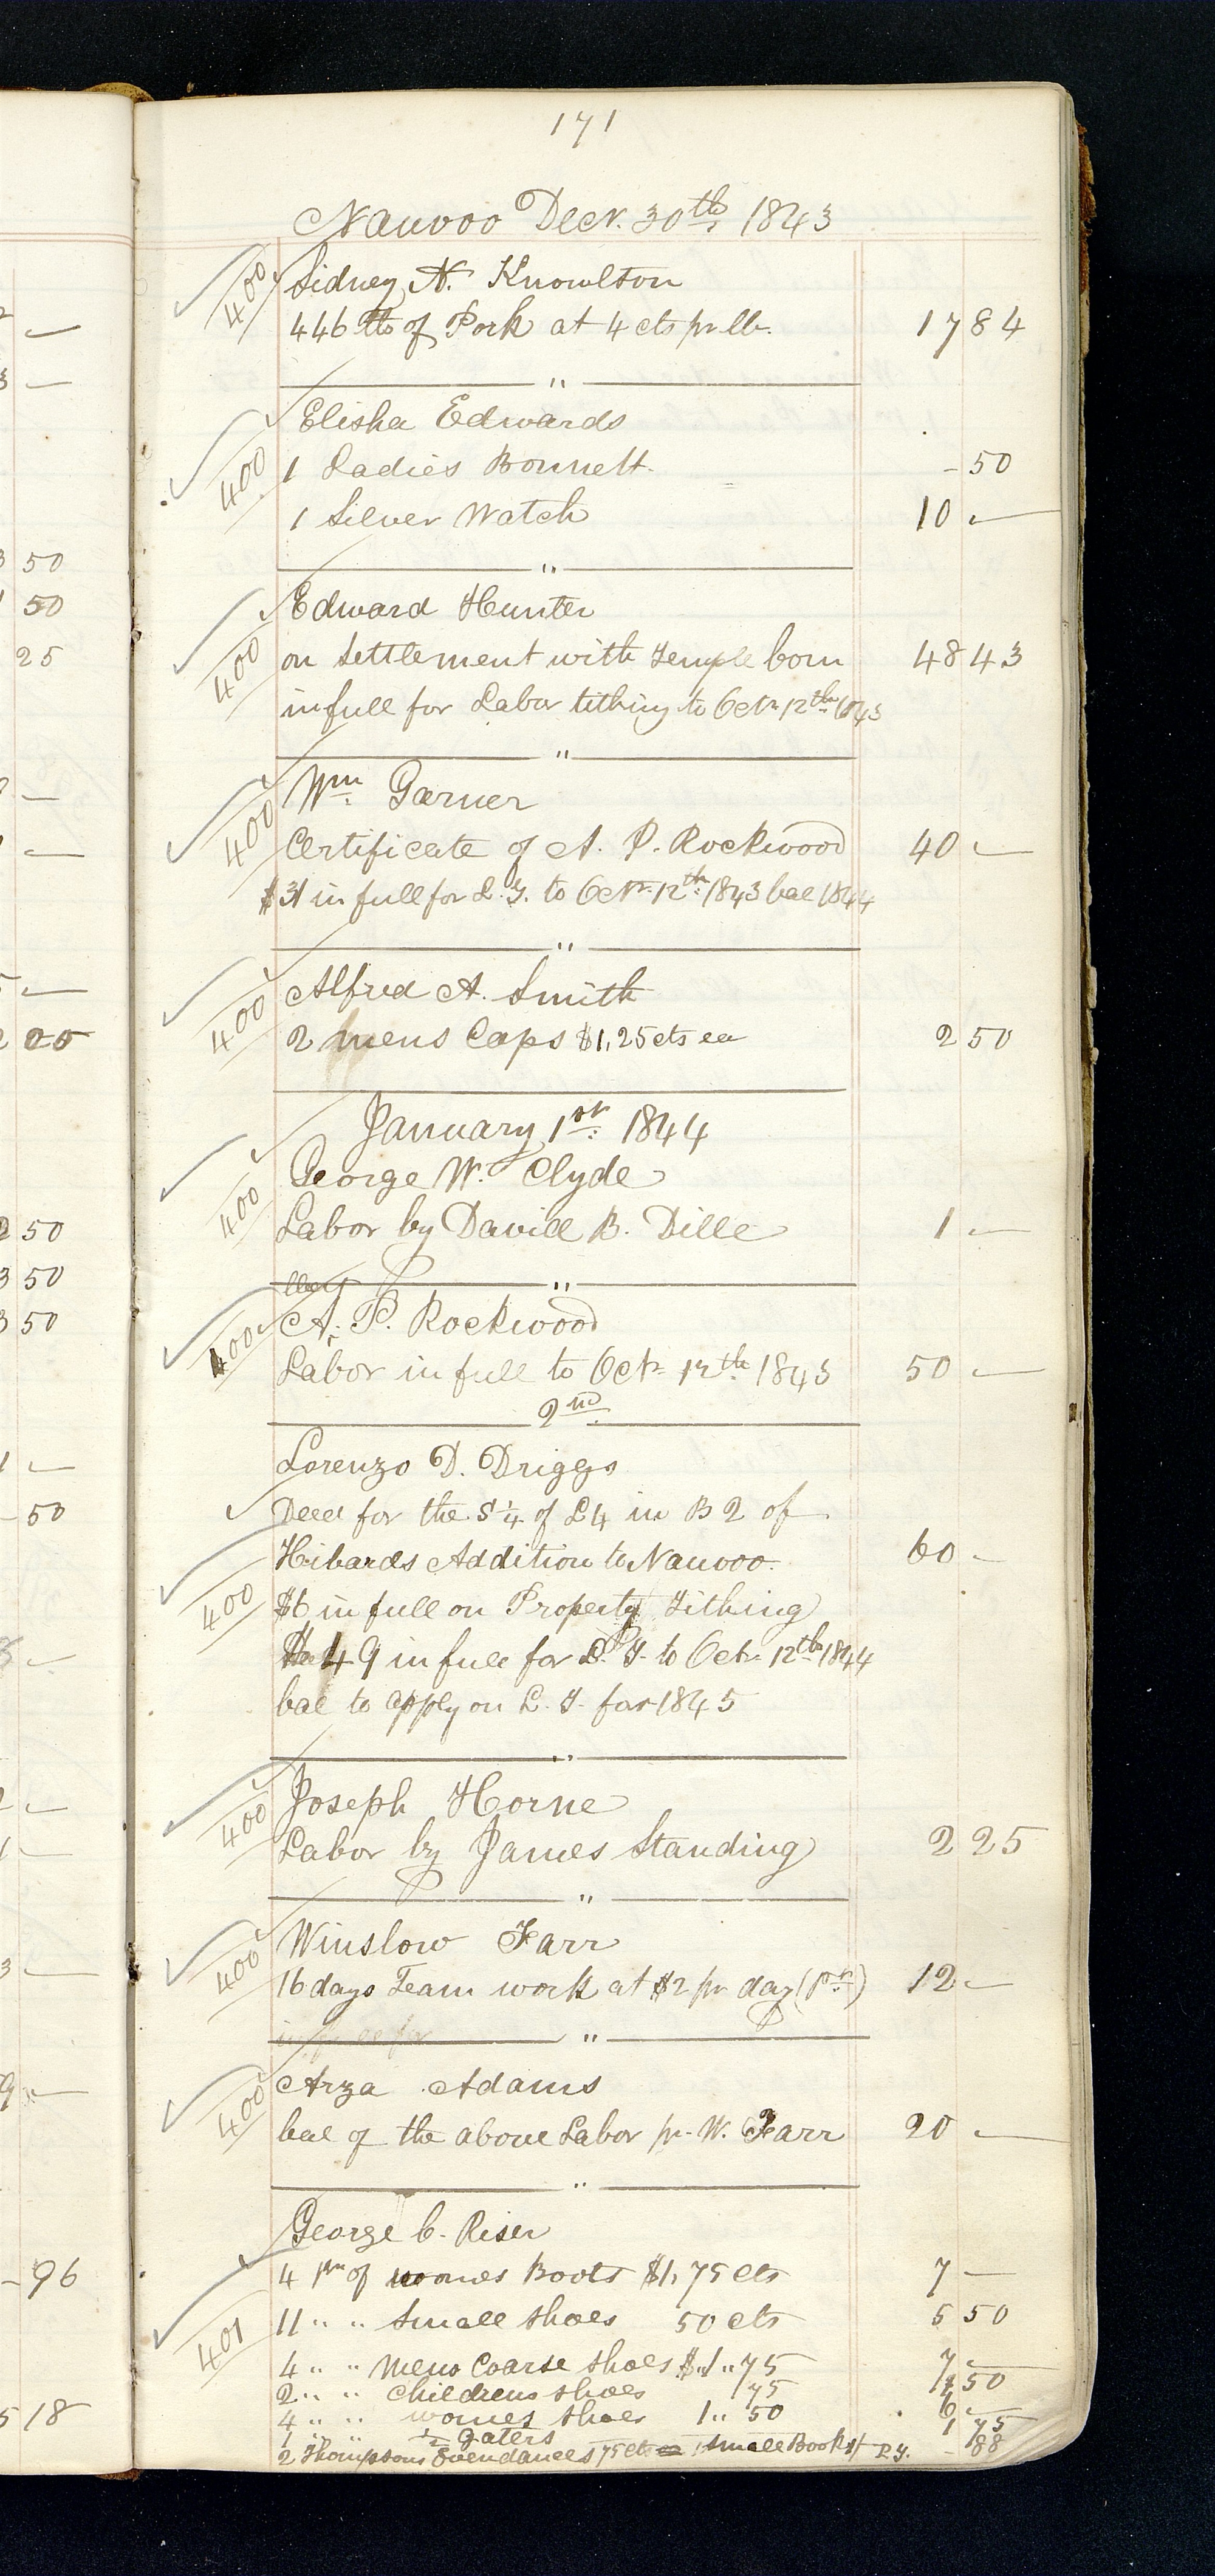 171
Nauvoo Decr. 30th 1843
400 Sidney N. Knowlton
446 lbs of Pork at 4 cts pr lb. 17 84
"
Elisha Edwards
400 1 Ladies Bonnett. - 50
1 Silver Watch 10 —
"
Edward Hunter
400 on Settlement with Temple Com 48 43
in full for Labor tithing to Octr 12th 1843
"
Wm Garner
400 Certificate of A. P. Rockwood 40 —
$31 in full for L. T. to Octr 12th 1843 bal 1844
"
Alfred A. Smith
400 2 mens Caps $1,25 cts ea 2 50
January 1st 1844
George W. Clyde
400 Labor by David B. Dille 1 —
"
A. P. Rockwood
400 Labor in full to Octr 12th 1843 50 —
2nd
Lorenzo D. Driggs
Deed for the S 1/4 of L 4 in B 2 of
Hibards Addition to Nauvoo. 60 —
400 $6 in full on Property Tithing
49 in full for L. T. to Octr 12th 1844
bal to apply on L. T. for 1845
"
Joseph Horne
400 Labor by James Standing 2 25
"
Winslow Farr
400 16 days Team work at $2 pr day (pt) 12 —
in full for "
Arza Adams
400 bal of the above Labor pr W. Farr 20 —
"
George C. Riser
4 pr of womes Boots $1,75 cts 7 —
11 " " Small Shoes 50 cts 5 50
401 4 " " Mens Coarse Shoes $1 " 75 7 —
2 " " Childrens Shoes 75 1 50
4 " " womes Shoes 1 " 50 6 —
1 " " gaters 1 75
2 Thompsons 75 cts 1 Small Book P. T. - 88
— 
3 —
50
50
25
—
—
—
2 00
2 50
3 50
3 50
1 —
- 50
—
—
1 —
3 —
9 —
- 96
5 18